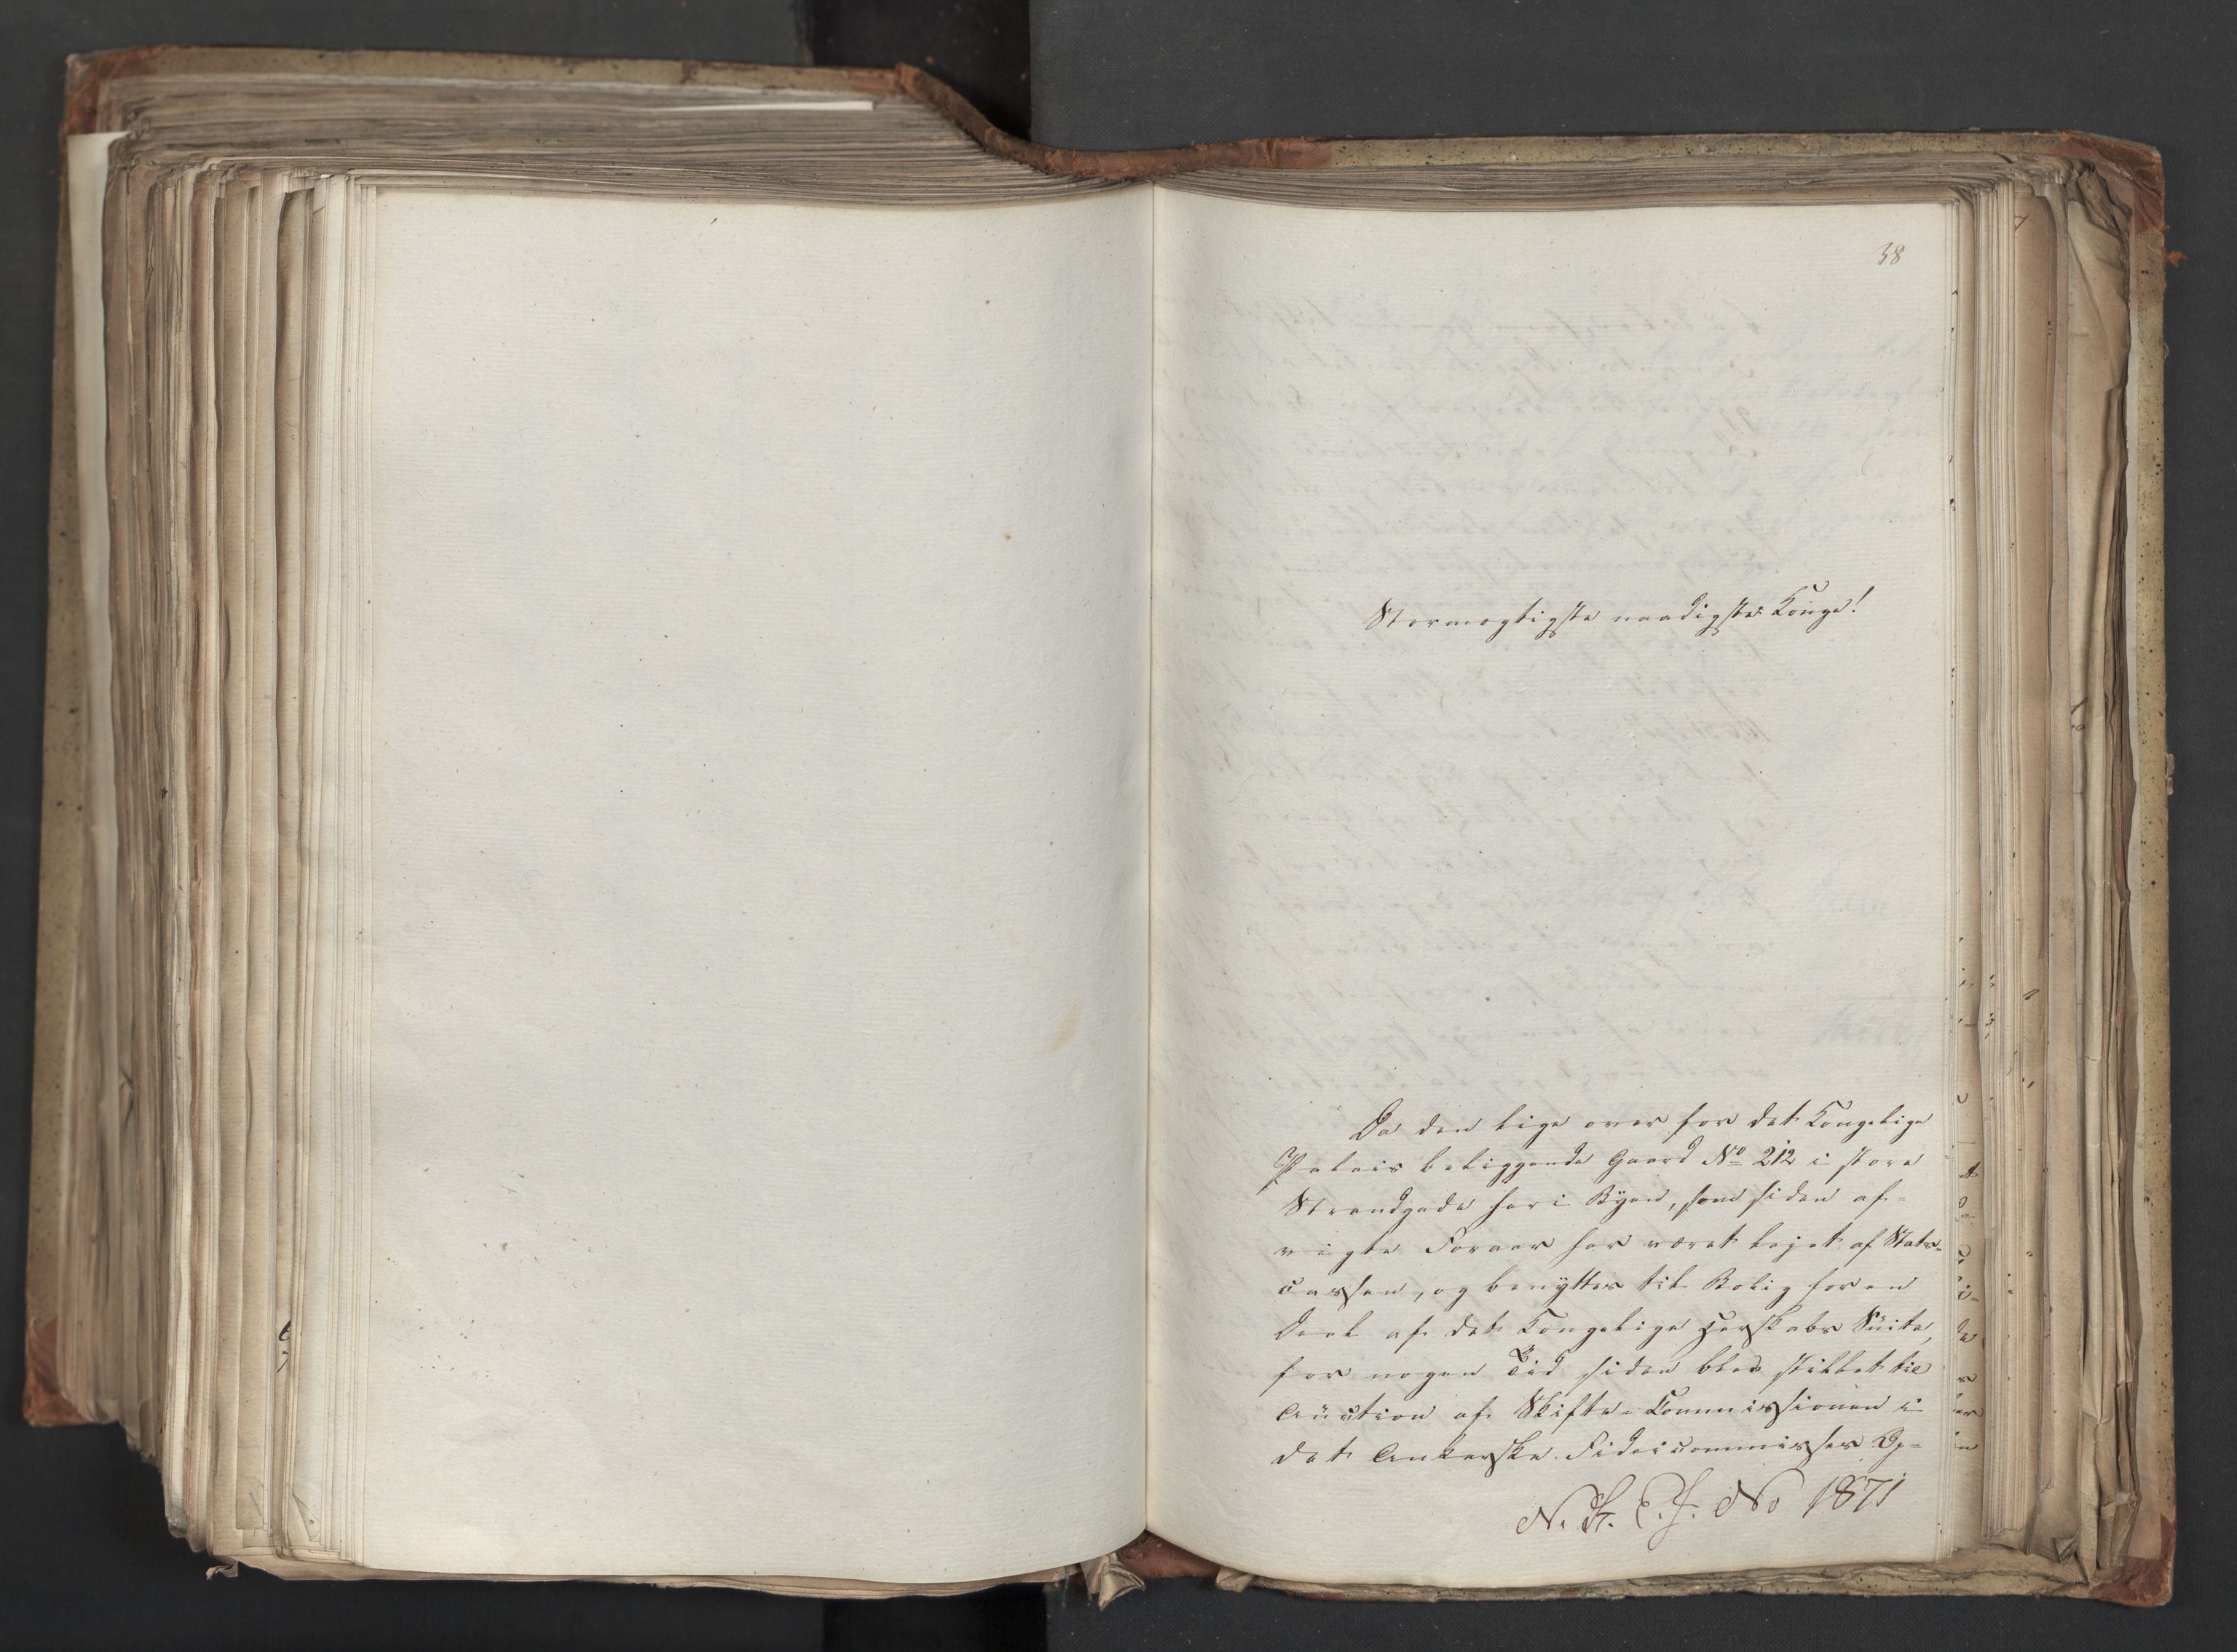 38
Stormægtigste naadigste Konge!
Da den lige over for det Kongelige
Palais beliggende Gaard No 212 i store
Strandgade her i Byen, som siden af-
vigte Foraar har været lejet af Stats-
cassen, og benyttes til Bolig for en
Deel af det Kongelige Herskabs Suite,
for nogen Tid siden blev stillet til
Auction af Skifte-Commissionen i
det Ankerske Fideicommisses Op-
N. No 1871